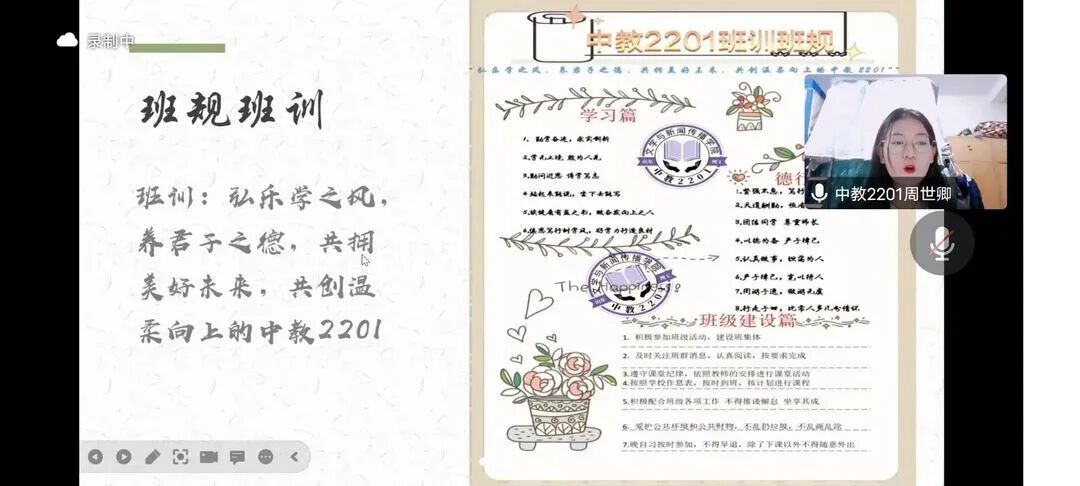 录制中
班规班训
班训：弘乐学之风，
养君子之德，共拥
美好未来，共创温
柔向上的中教2201
中教2201班训班规
弘乐学之风、养君子之德、共拥美好未来、共创温柔向上的中教2201
学习篇
1、勤学奋进，求实创新
2.学无止境 敢为人先
3.勤问近思 博学笃志
4.站起来能说，坐下去能写
5.读健康有益之书，做奋发向上之人
文学与新闻传播学院
中教2201
德行
3.团结同学 尊重师长
4.以德为备 严于律己
5.认真做事，宽容为人
6.严于律己，宽以待人
中教2201周世卿
文学与新闻传播学院
中教2201
The Happiness
班级建设篇
1. 积极参加班级活动，建设班集体
2. 及时关注班群消息，认真阅读，按要求完成
3.遵守课堂纪律，依照教师的安排进行课堂活动
4.按照学校作息表，按时到班，按计划进行课程
5.积极配合班级各项工作 不得推诿懈怠 坐享其成
6. 爱护公共环境和公共财物，不乱扔垃圾，不乱画乱涂
7.晚自习按时参加，不得早退，除了下课以外不得随意外出